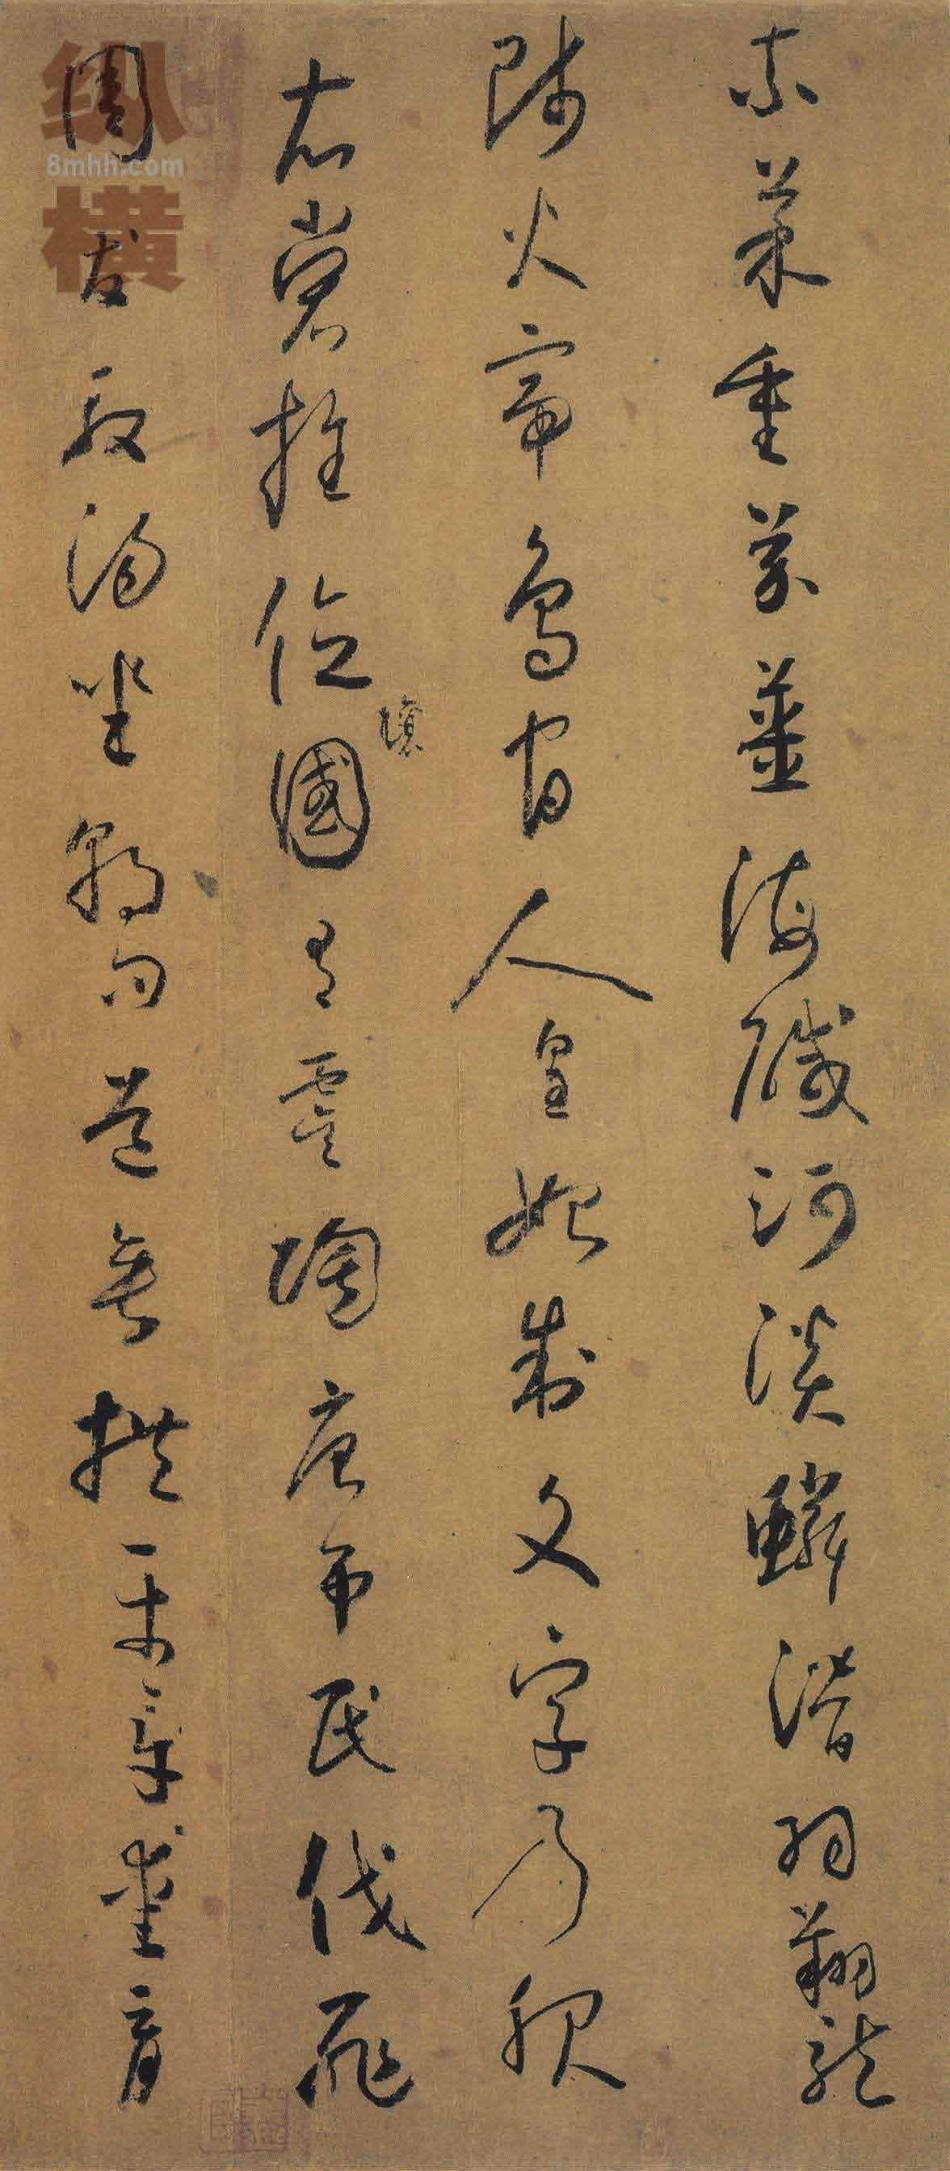 柰菜重芥薑海鹹河淡鱗潛羽翔龍
師火帝鳥官人皇始制文字乃服
衣裳推位讓國有虞陶唐弔民伐罪
周發殷湯坐朝問道垂拱平章愛育
纵横
8mhh.com